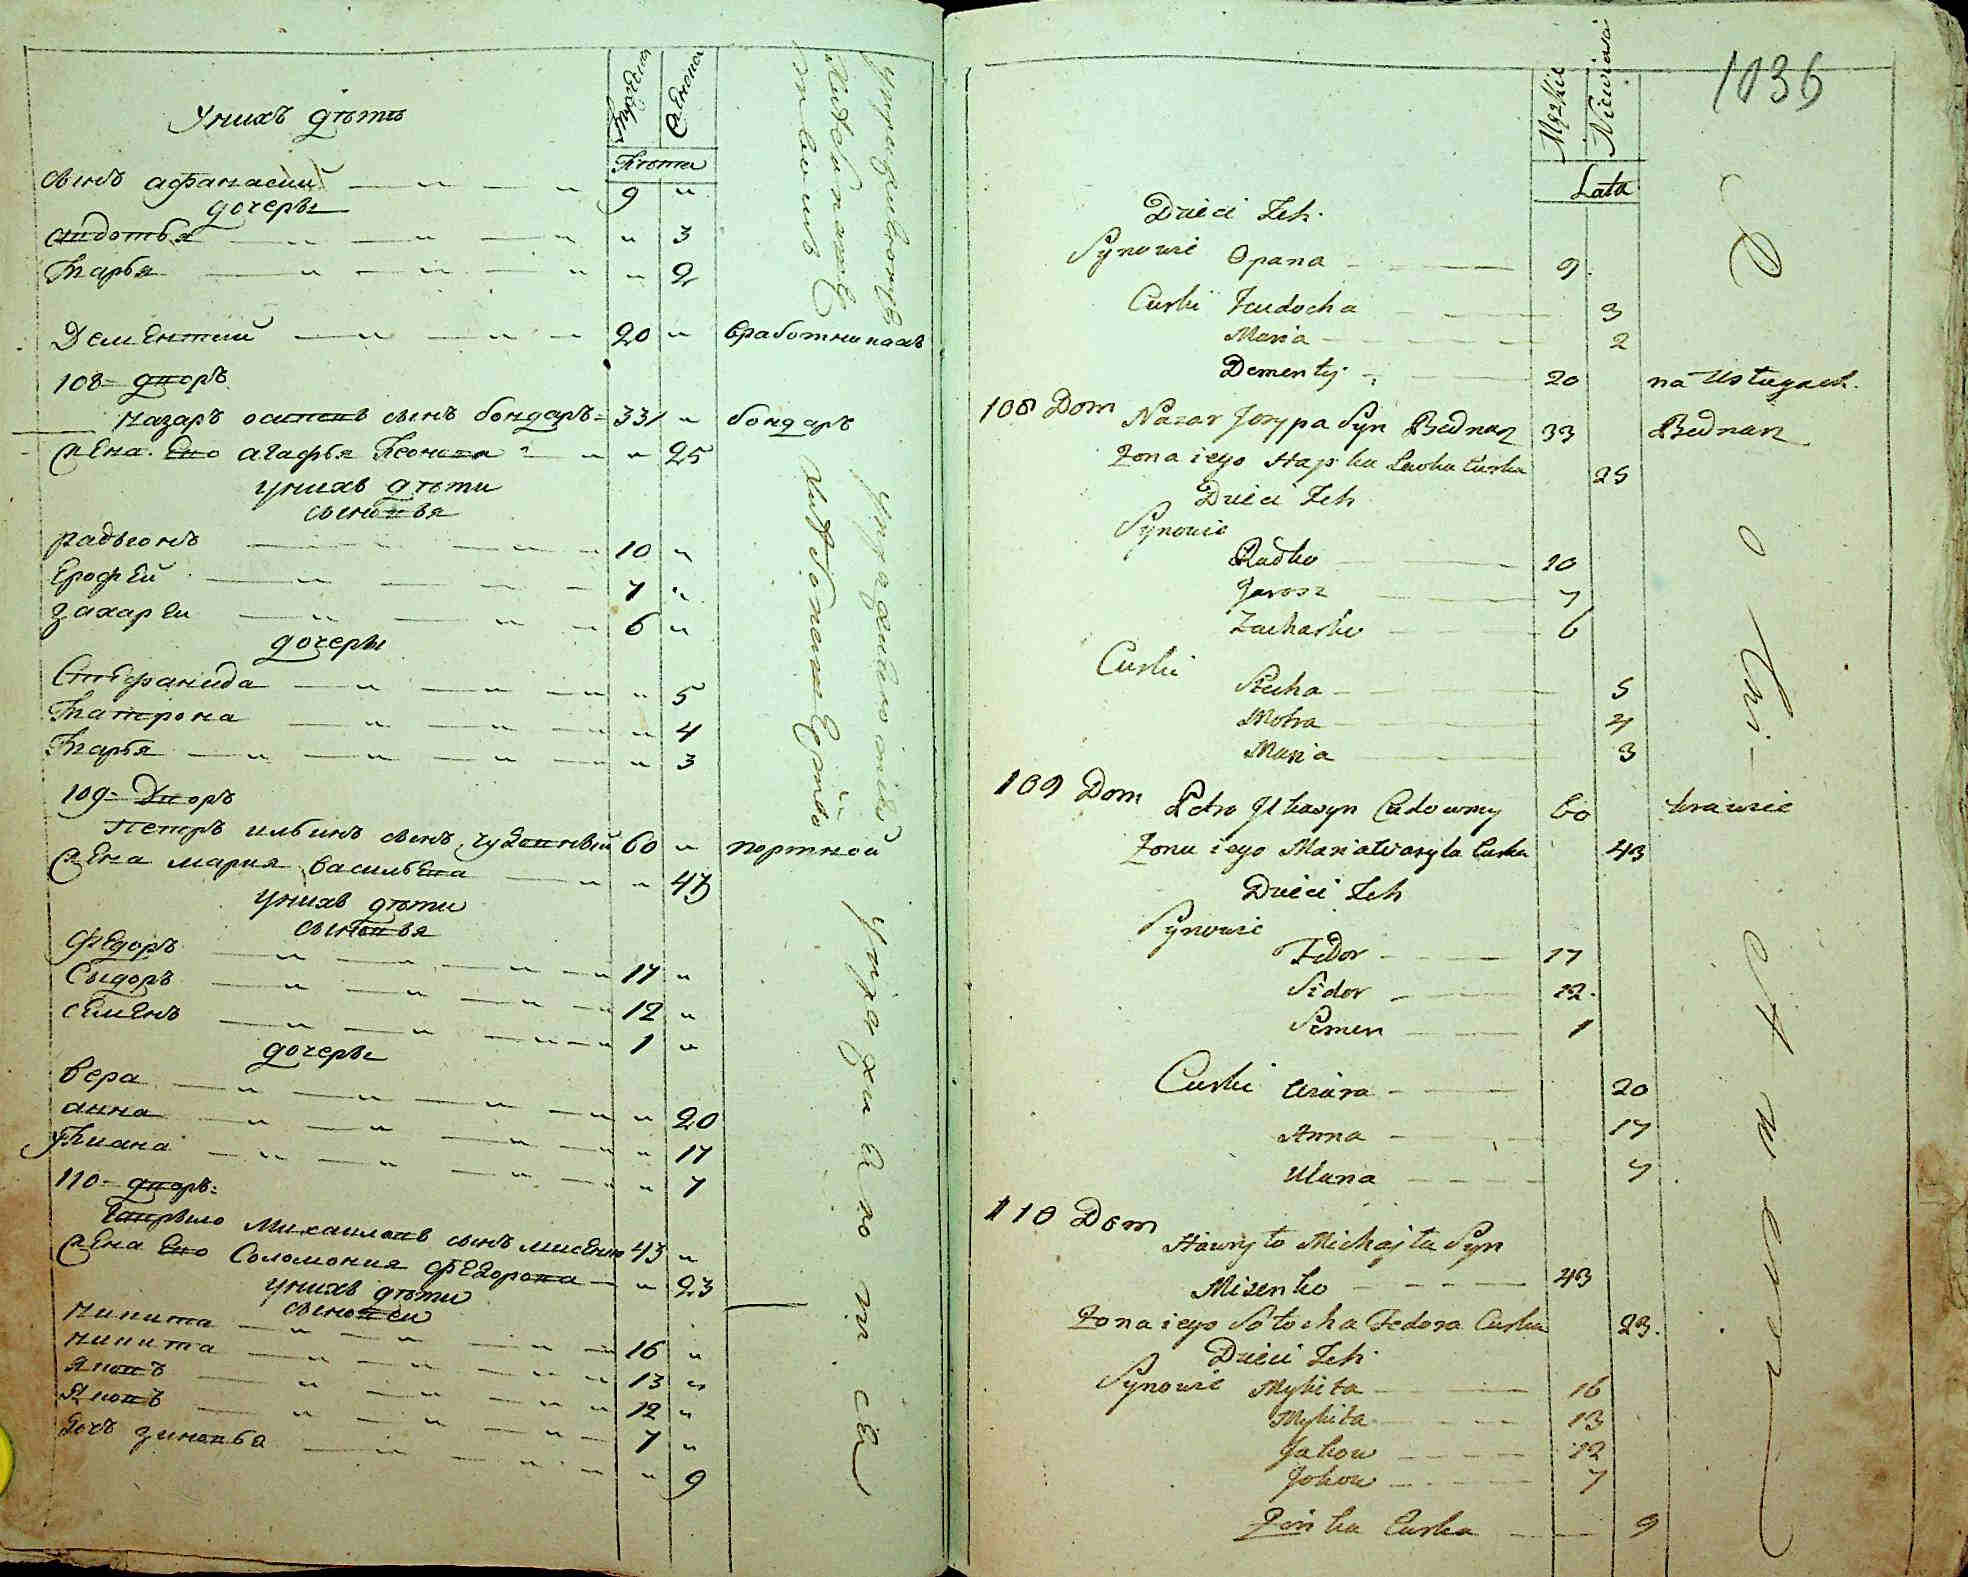 мужеска
женска
Унихъ дѣти
Лѣта
сынъ афанасий 9 "
дочеры
авдотья " 3
Марья " 2
Дементий 20 " вработникахъ
108 = дворъ
назаръ осиповъ сынъ бондаръ = 33 " бондаръ
жена Его агафья Леонова " 25
унихъ дѣти
сыновья
радивонъ 10 "
Ерофей 7 "
захарей 6 "
дочеры
Стефанида " 5
Матрона " 4
Марья " 3
109 = Дворъ
Петръ ильинъ сынъ 60 " портной
жена мария васильева " 43
унихъ дѣти
сыновья
федоръ 17 "
Сидоръ 12 "
семенъ 1 "
дочеры
вера " 20
анна " 17
ульяна " 7
110 = дворъ:
Гаврыло Михаиловъ сынъ мисенко 43 "
жена Его Соломония федорова " 23
унихъ дѣти
сыновей
никита 16 "
никита 13 "
Яковъ 12 "
Яковъ 7 "
дочь зиновья " 9
1036
Męzkie
Niewiasta
Lata
Dzieci Ich
Synowie Opana 9
Curki Jewdocha 3
Maria 2
Dementy 20 na Usługach
108 Dom Nazar Josypa Syn Bednarz 33 Bednarz
Zona iego Hapka Lewka Curka 25
Dzieci Ich
Synowie
Radko 10
Jarosz 7
Zacharko 6
Curki
Stecha 5
Motra 4
Maria 3
109 Dom Petro Ilka syn 60 krawiec
Zona iego Maria Wasyla Curka 43
Dzieci Ich
Synowie
Fedor 17
Sidor 12
Semen 1
Curki Wiara 20
Anna 17
Ulana 7
110 Dom
Hawryło Michajła Syn
Misenko 43
Zona iego Sołocha Fedora Curka 23
Dzieci Ich
Synowie Mykita 16
Mykita 13
Jakow 12
Jakow 7
Zinka Curka 9